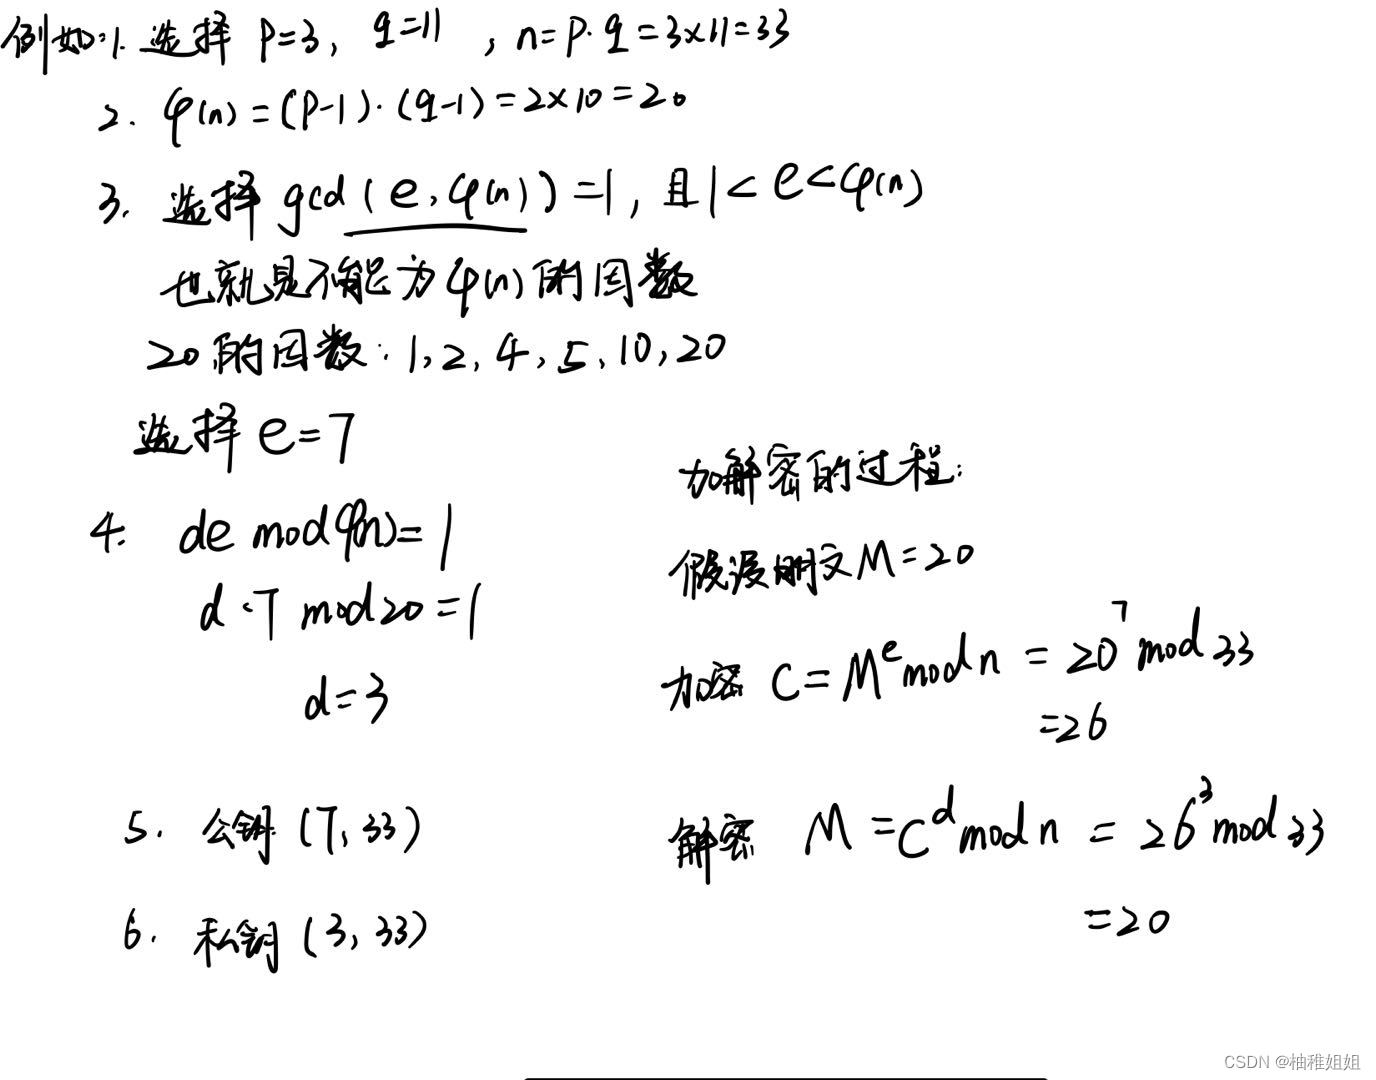 例如:1. 选择 P=3, q=11 , n=P·q=3×11=33
2. φ(n)=(P-1)·(q-1)=2×10=20
3. 选择 gcd(e,φ(n))=1, 且1<e<φ(n)
也就是不能为φ(n)的因数
20的因数:1,2,4,5,10,20
选择 e=7
4. de mod φ(n)=1
d·7 mod 20=1
d=3
5. 公钥(7,33)
6. 私钥(3,33)
加解密的过程:
假设明文M=20
加密 C=M^e mod n = 20^7 mod 33
=26
解密 M=C^d mod n = 26^3 mod 33
=20
CSDN @柚稚姐姐